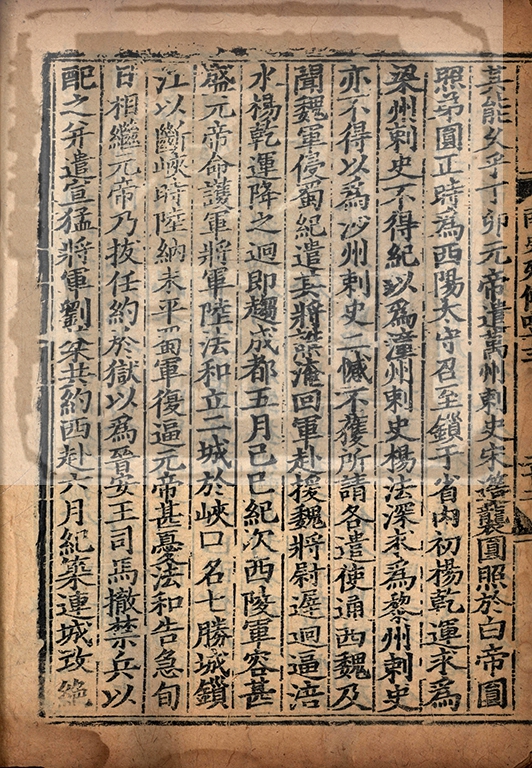 其能久乎丁卯元帝遣萬州刺史宋簉襲圓照於白帝圓
照弟圓正時為西陽太守召至鎖于省內初楊乾運求為
梁州刺史不得紀以為潼州刺史楊法深求為黎州刺史
亦不得以為沙州刺史二憾不獲所請各遣使通西魏及
聞魏軍侵蜀紀遣其將梁淹回軍赴援魏將尉遲迥逼涪
水楊乾運降之迥即趨成都五月己巳紀次西陵軍容甚
盛元帝命護軍將軍陸法和立二城於峽口名七勝城鎖
江以斷峽時陸納未平蜀軍復逼元帝甚憂法和告急旬
日相繼元帝乃拔任約於獄以為晉安王司馬撤禁兵以
配之并遣宣猛將軍劉棻共約西赴六月紀築連城攻絶